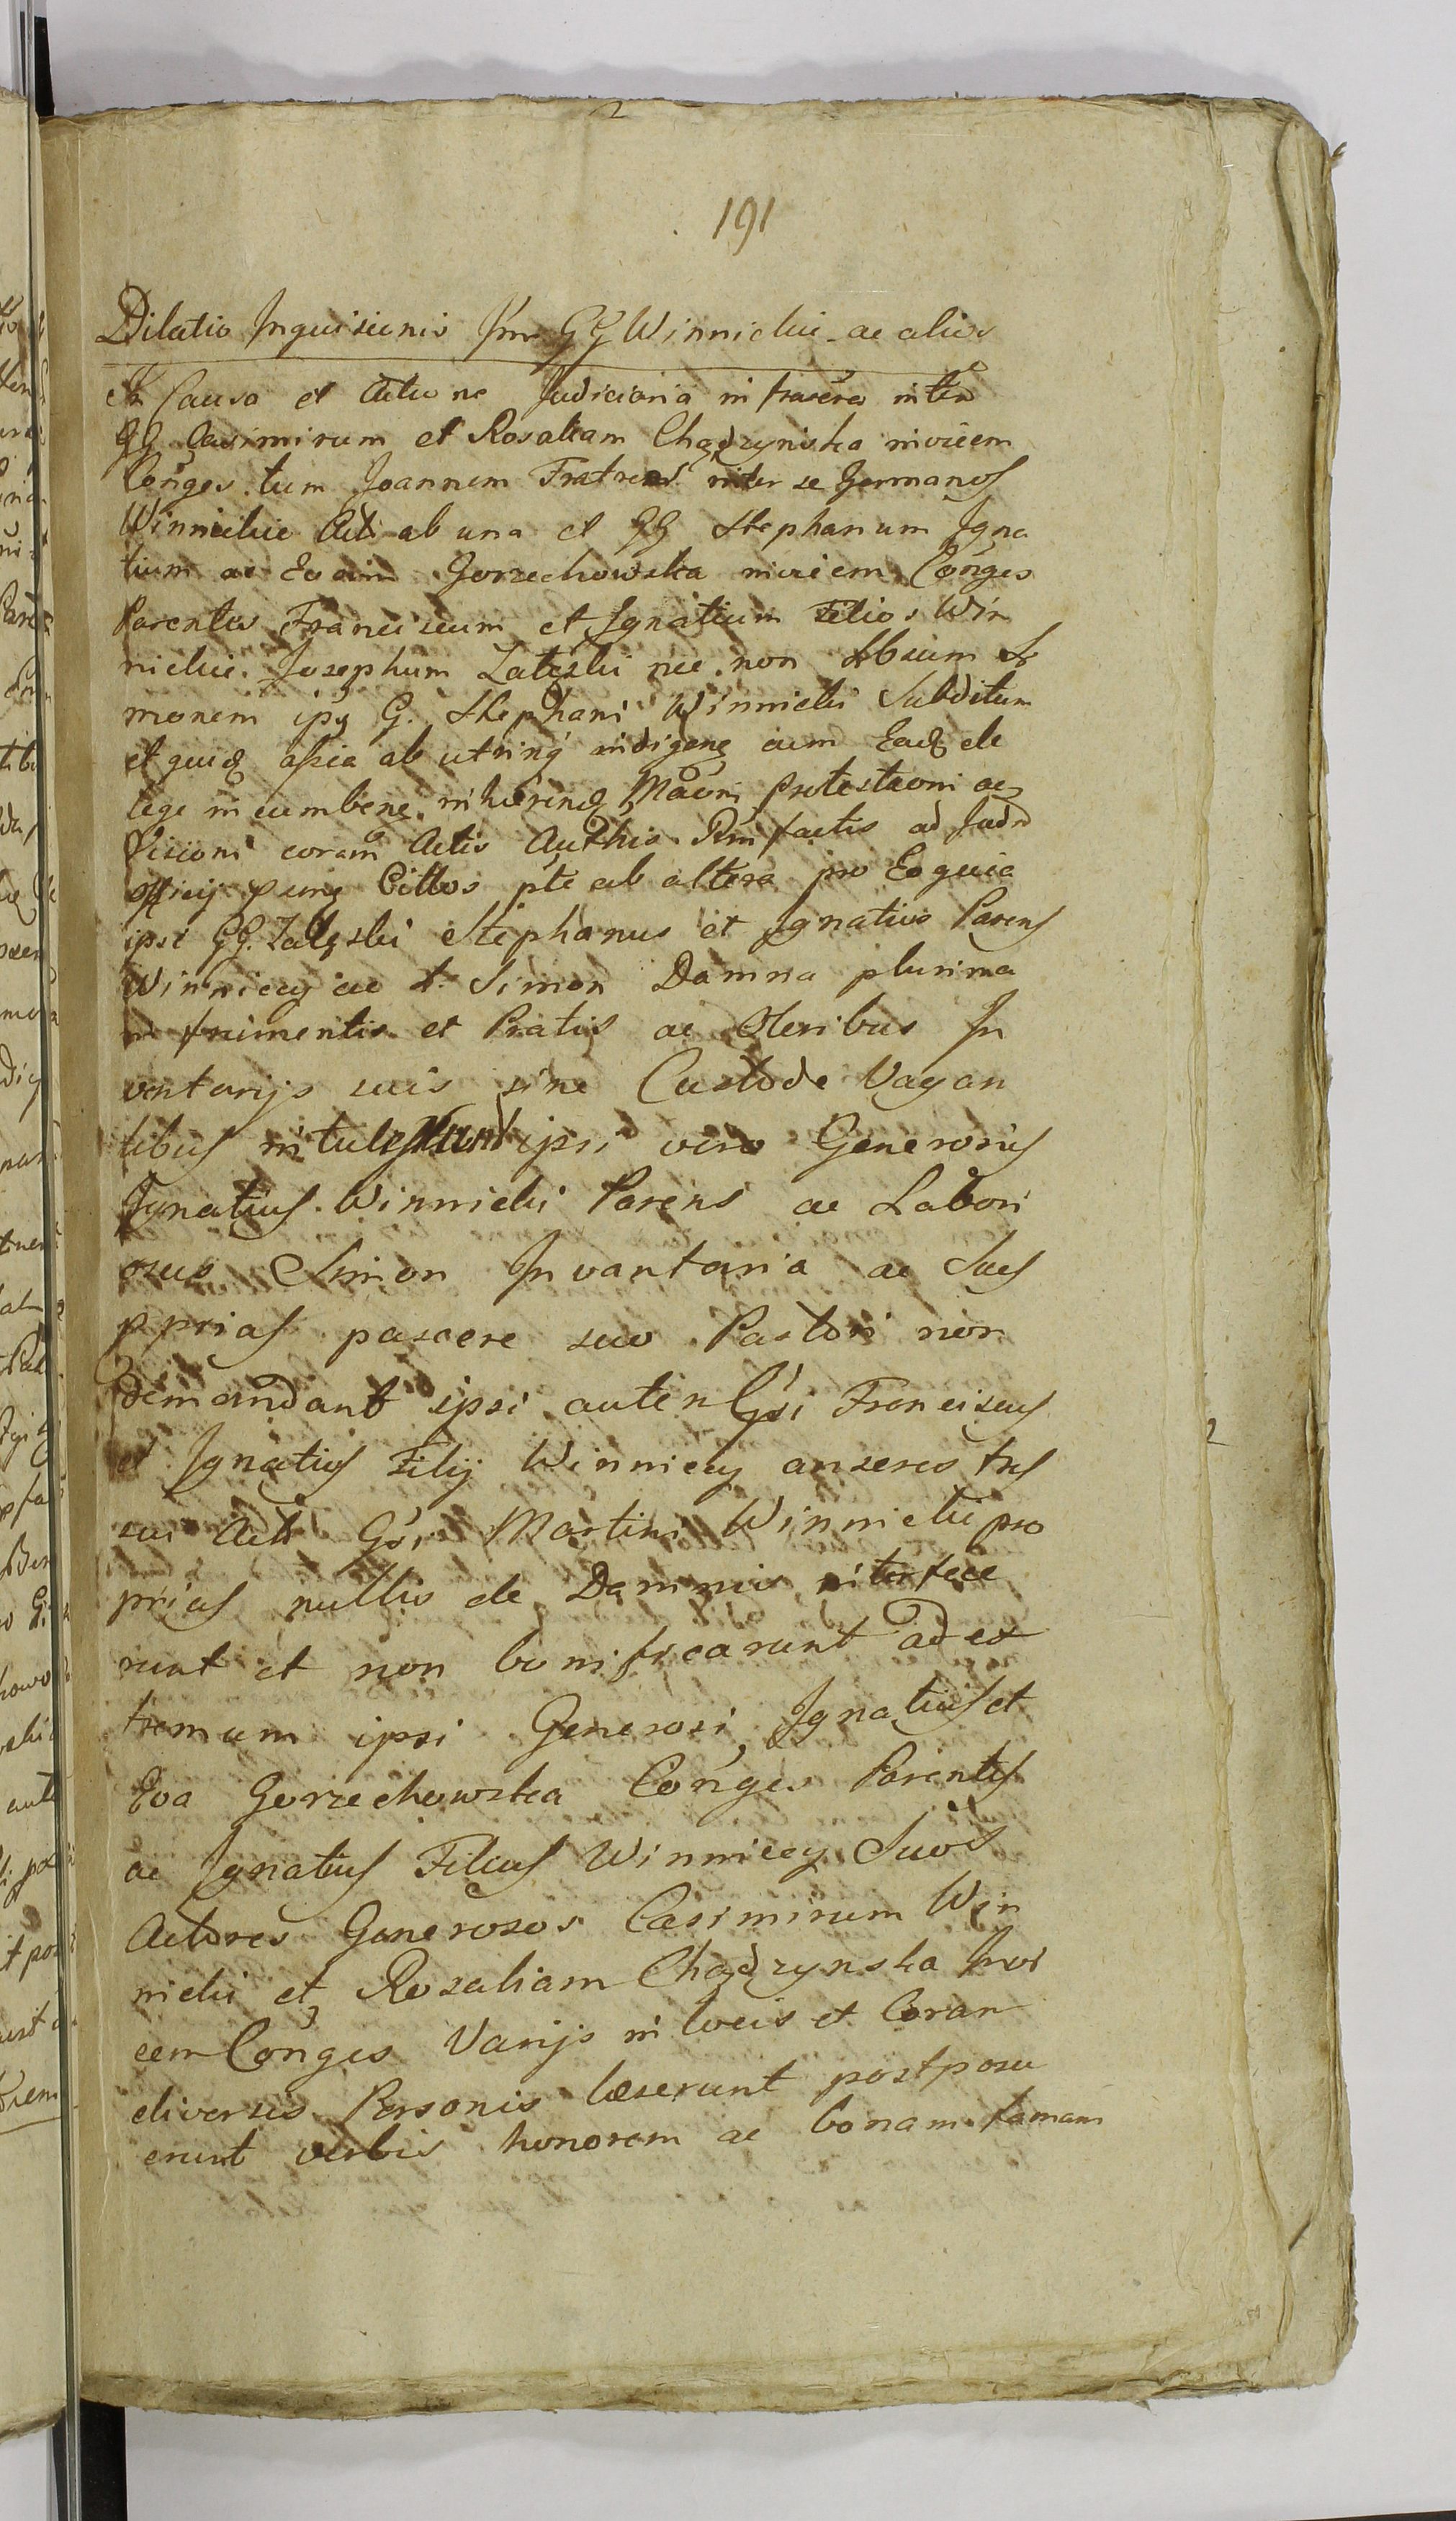 191
Dilatio Inquisicionis Inr GG Winnickie ac alios
In Causa et Actione Judiciaria infrascra inter
GG Casimirum et Rosaliam Chądzynska invicem
Conges. tum Joannem Fratres inter se Germanos
Winnickie Act. ab una et GG Stephanum Igna
tium ac Evam Gorzechowska invicem Conges
Parentes Franciscum et Ignatium Filios Win
nickie. Josephum Zaleski nec non Lbsum Si
monem ipsq G. Stephani Winnicki Subditum
et quidq alia ab utrinq indigenq cum Eadq de
lege incumbenq. inhærendq Mãoni Protestaoni ac
Visioni coram Actis Authis Rmi factis ad Judm
officij punq Cittos pte ab altera pro Eo quia
ipsi GG. Zalęski Stephanus et Ignatius Parens
Winniccy ac L. Simon Damna plurima
in frumentis et Pratis ac Oleribus In
ventarijs suis sine Custode Vagan
tibus intulerunt ipsi vero Generosus
Ignatius Winnicki Parens ac Labori
osus Simon Invantaria ac Sues
pprias pascere suo Pastori non
demandant ipsi autem Gsi Franciscus
et Ignatius Filij Winniccy anseres tres
sui Act. Gsi Martini Winnicki pro
prias nullis de Damnis interfece
runt et non bonificarunt ad ex
tremum ipsi Generosi, Ignatius et
Eva Gorzechowska Conges Parentes
ac Ignatius Filius Winniccy Suos
Actores Generosos Casimirum Win
nicki et Rosaliam Chądzynska Invi
cem Conges Varijs in locis et Coram
diversis Personis læserunt postposu
erunt verbis honorem ac bonam famam